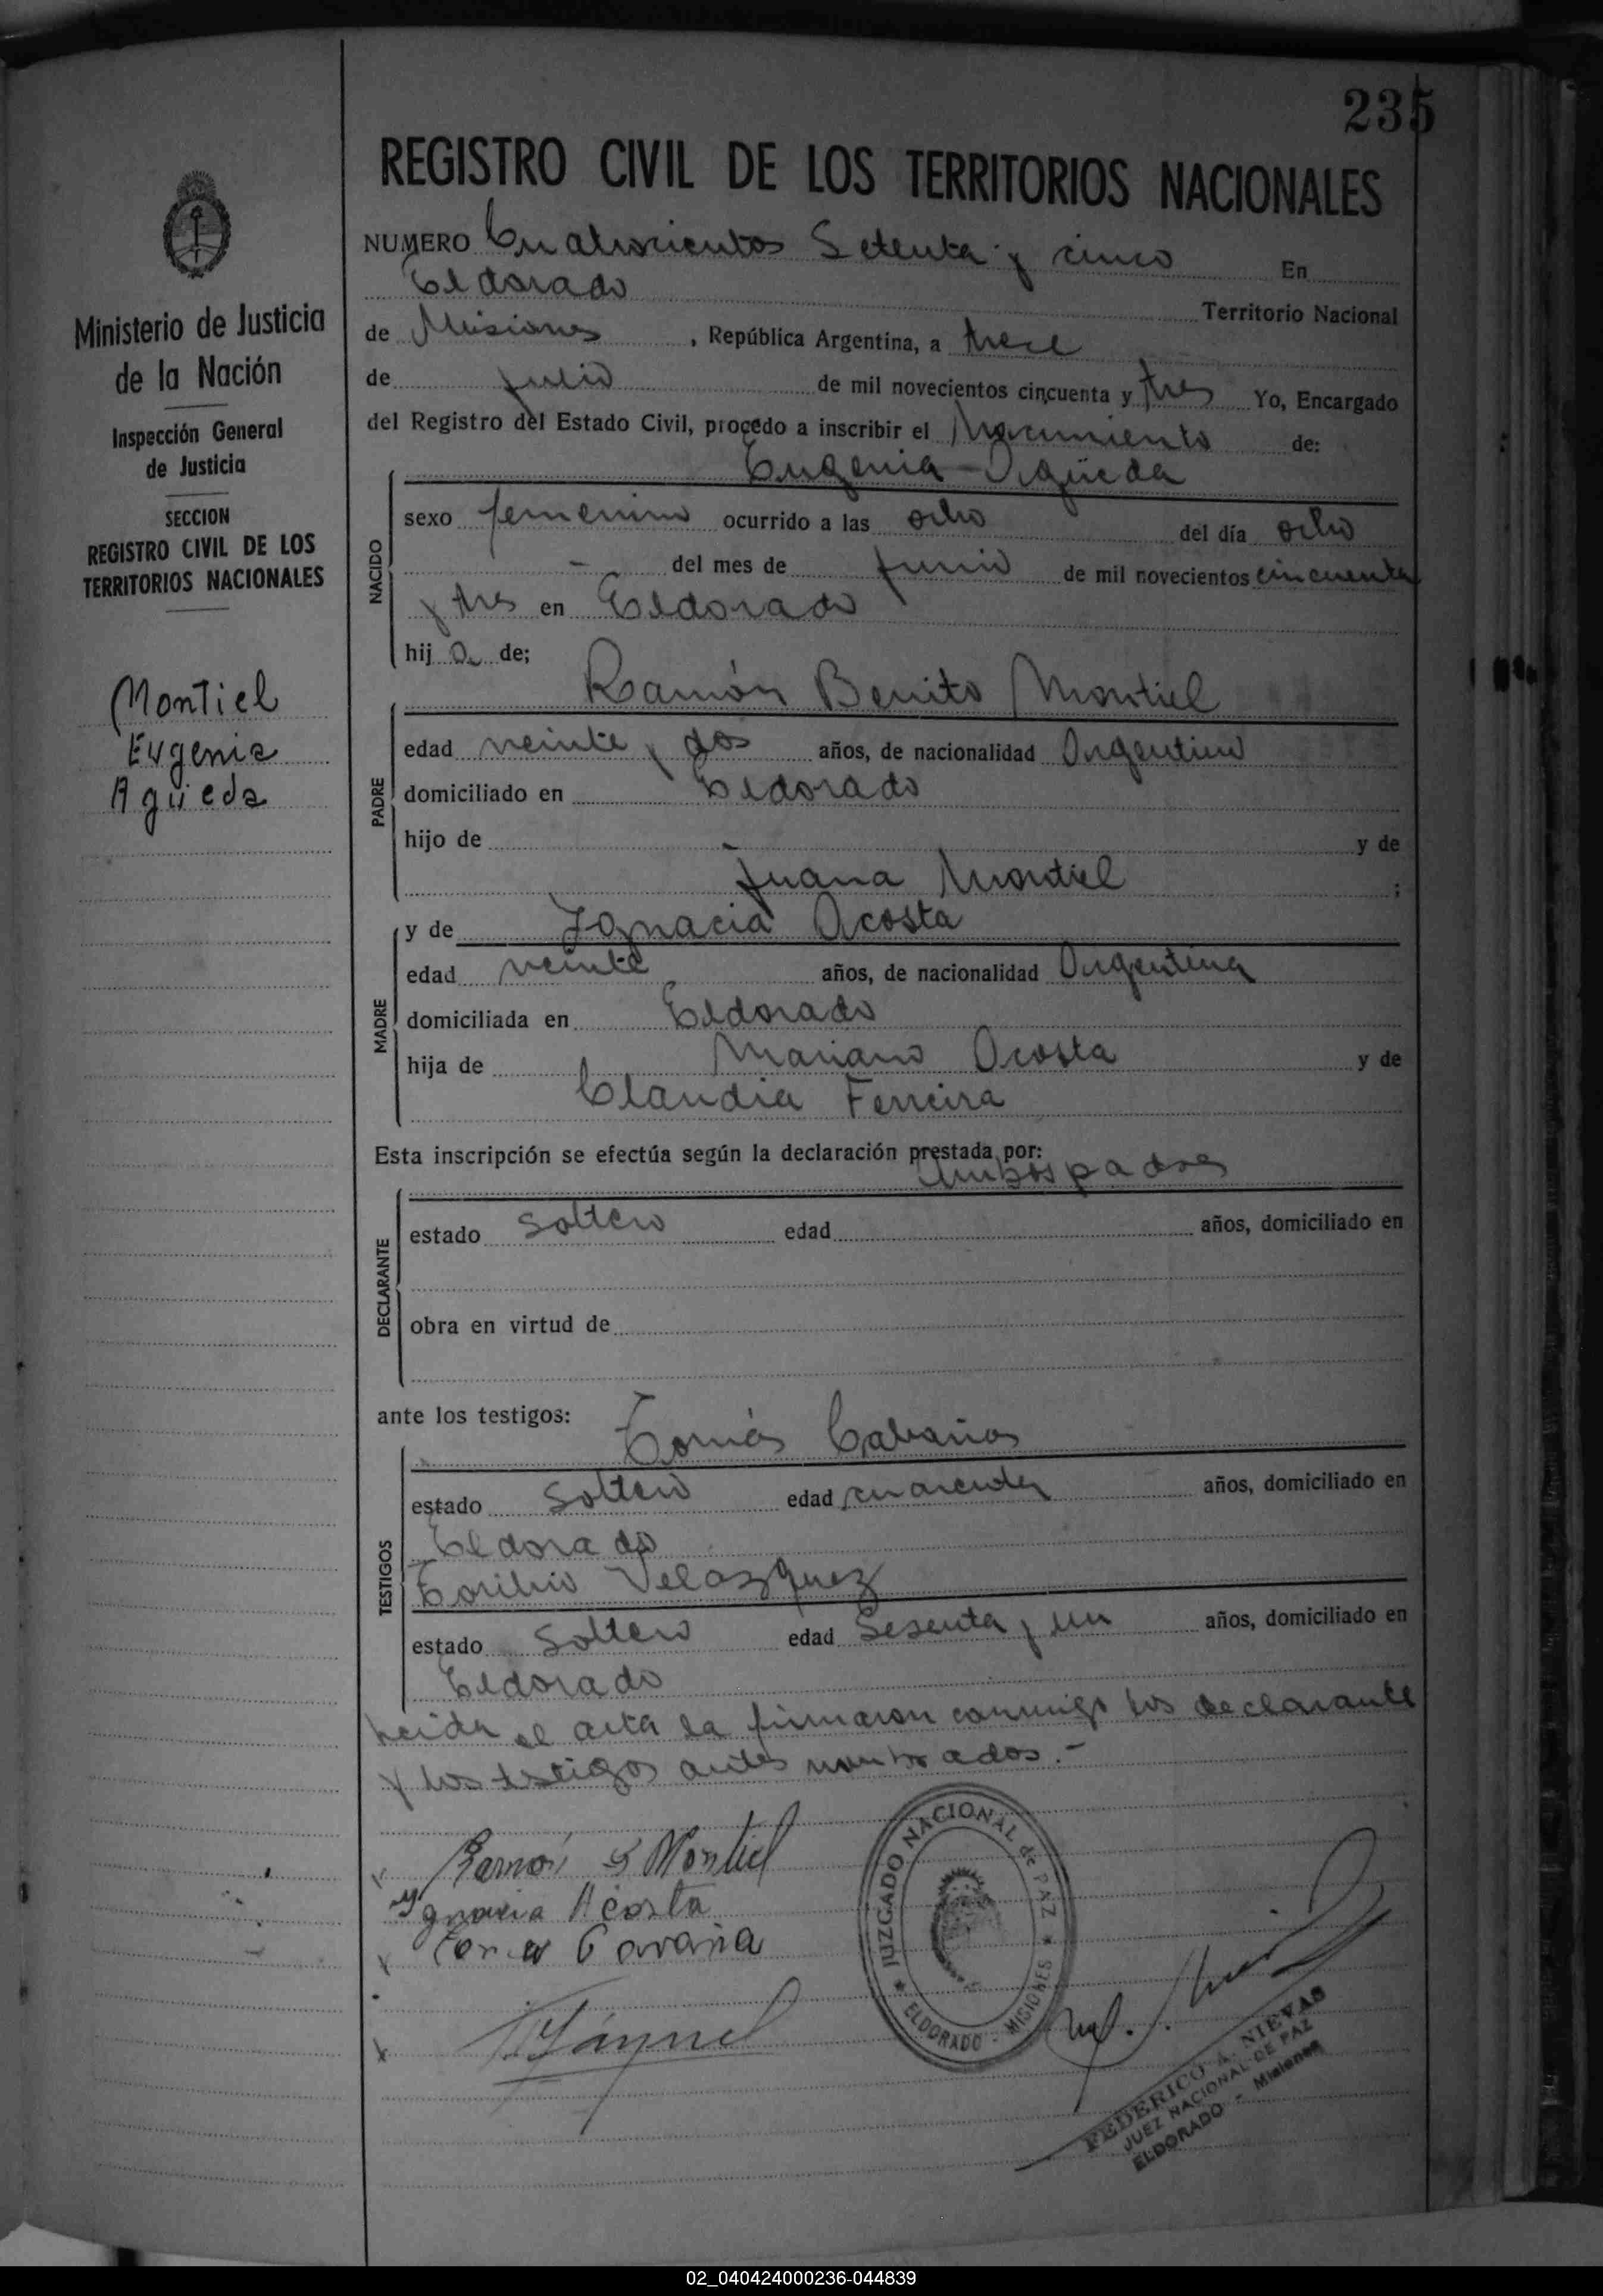 235
REGISTRO CIVIL DE LOS TERRITORIOS NACIONALES
NUMERO Cuatrocientos Setenta y cinco En
Eldorado Territorio Nacional
de Misiones, República Argentina, a trece
de julio de mil novecientos cincuenta y tres Yo, Encargado
del Registro del Estado Civil, procedo a inscribir el Nacimiento de:
Eugenia Agüeda
NACIDO
sexo femenino ocurrido a las ocho del día ocho
- del mes de junio de mil novecientos cincuenta
y tres en Eldorado
hij a de;
Ramón Benito Montiel
PADRE
edad veinte y dos años, de nacionalidad Argentino
domiciliado en Eldorado
hijo de - y de
Juana Montiel ;
y de Ignacia Acosta
MADRE
edad veinte años, de nacionalidad Argentina
domiciliada en Eldorado
hija de Mariano Acosta y de
Claudia Ferreira
Esta inscripción se efectúa según la declaración prestada por:
Ambos padres
DECLARANTE
estado soltero edad años, domiciliado en
obra en virtud de
ante los testigos:
Tomás Cabañas
TESTIGOS
estado Soltero edad cuarenta años, domiciliado en
Eldorado
Toribio Velazquez
estado Soltero edad Sesenta y un años, domiciliado en
Eldorado
Leida el acta la firmaron conmigo los declarante
y los testigos antes nombrados.-
Ramón B Montiel
Ygnacia Acosta
JUZGADO NACIONAL de PAZ
ELDORADO - MISIONES
FEDERICO A. NIEVAS
JUEZ NACIONAL DE PAZ
ELDORADO - Misiones
Ministerio de Justicia
de la Nación
Inspección General
de Justicia
SECCION
REGISTRO CIVIL DE LOS
TERRITORIOS NACIONALES
Montiel
Eugenia
Agüeda
02_040424000236-044839